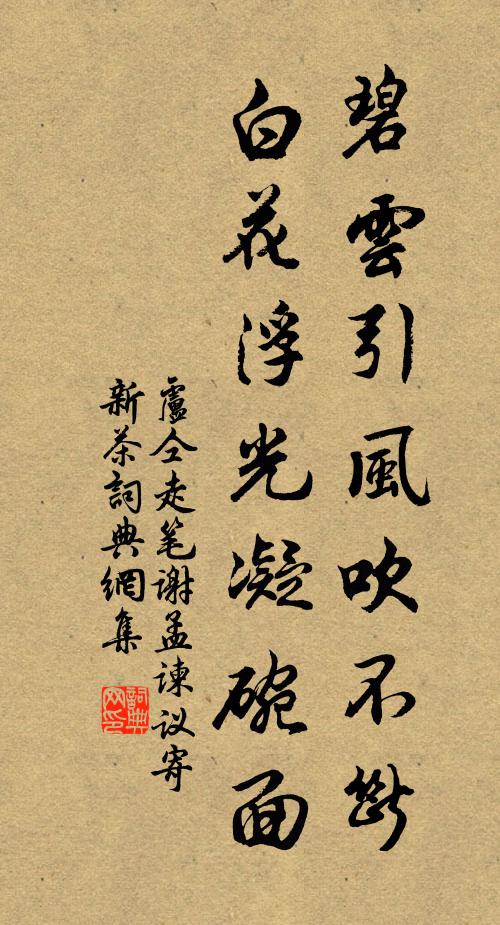 碧雲引風吹不斷
白花浮光凝碗面
盧仝走笔謝孟諫议寄
新茶詞典網集
詞典网印